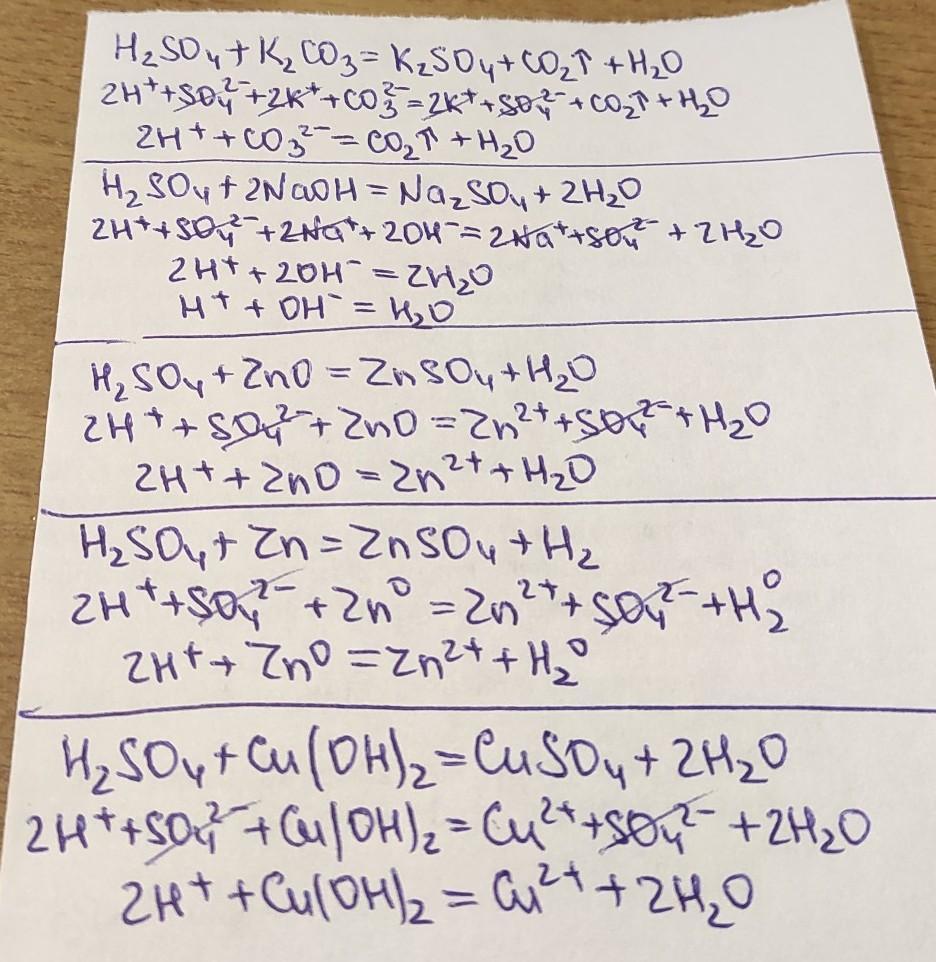 H₂SO₄ + K₂CO₃ = K₂SO₄ + CO₂↑ + H₂O
2H⁺ + SO₄²⁻ + 2K⁺ + CO₃²⁻ = 2K⁺ + SO₄²⁻ + CO₂↑ + H₂O
2H⁺ + CO₃²⁻ = CO₂↑ + H₂O
H₂SO₄ + 2NaOH = Na₂SO₄ + 2H₂O
2H⁺ + SO₄²⁻ + 2Na⁺ + 2OH⁻ = 2Na⁺ + SO₄²⁻ + 2H₂O
2H⁺ + 2OH⁻ = 2H₂O
H⁺ + OH⁻ = H₂O
H₂SO₄ + ZnO = ZnSO₄ + H₂O
2H⁺ + SO₄²⁻ + ZnO = Zn²⁺ + SO₄²⁻ + H₂O
2H⁺ + ZnO = Zn²⁺ + H₂O
H₂SO₄ + Zn = ZnSO₄ + H₂
2H⁺ + SO₄²⁻ + Zn⁰ = Zn²⁺ + SO₄²⁻ + H₂⁰
2H⁺ + Zn⁰ = Zn²⁺ + H₂⁰
H₂SO₄ + Cu(OH)₂ = CuSO₄ + 2H₂O
2H⁺ + SO₄²⁻ + Cu(OH)₂ = Cu²⁺ + SO₄²⁻ + 2H₂O
2H⁺ + Cu(OH)₂ = Cu²⁺ + 2H₂O